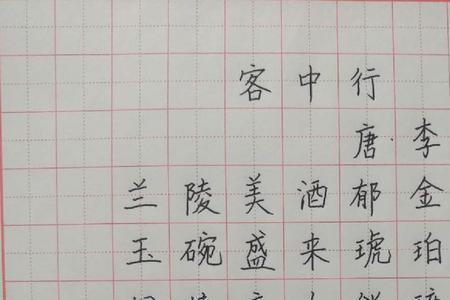 客中行
唐·李
兰陵美酒郁金
玉碗盛来琥珀